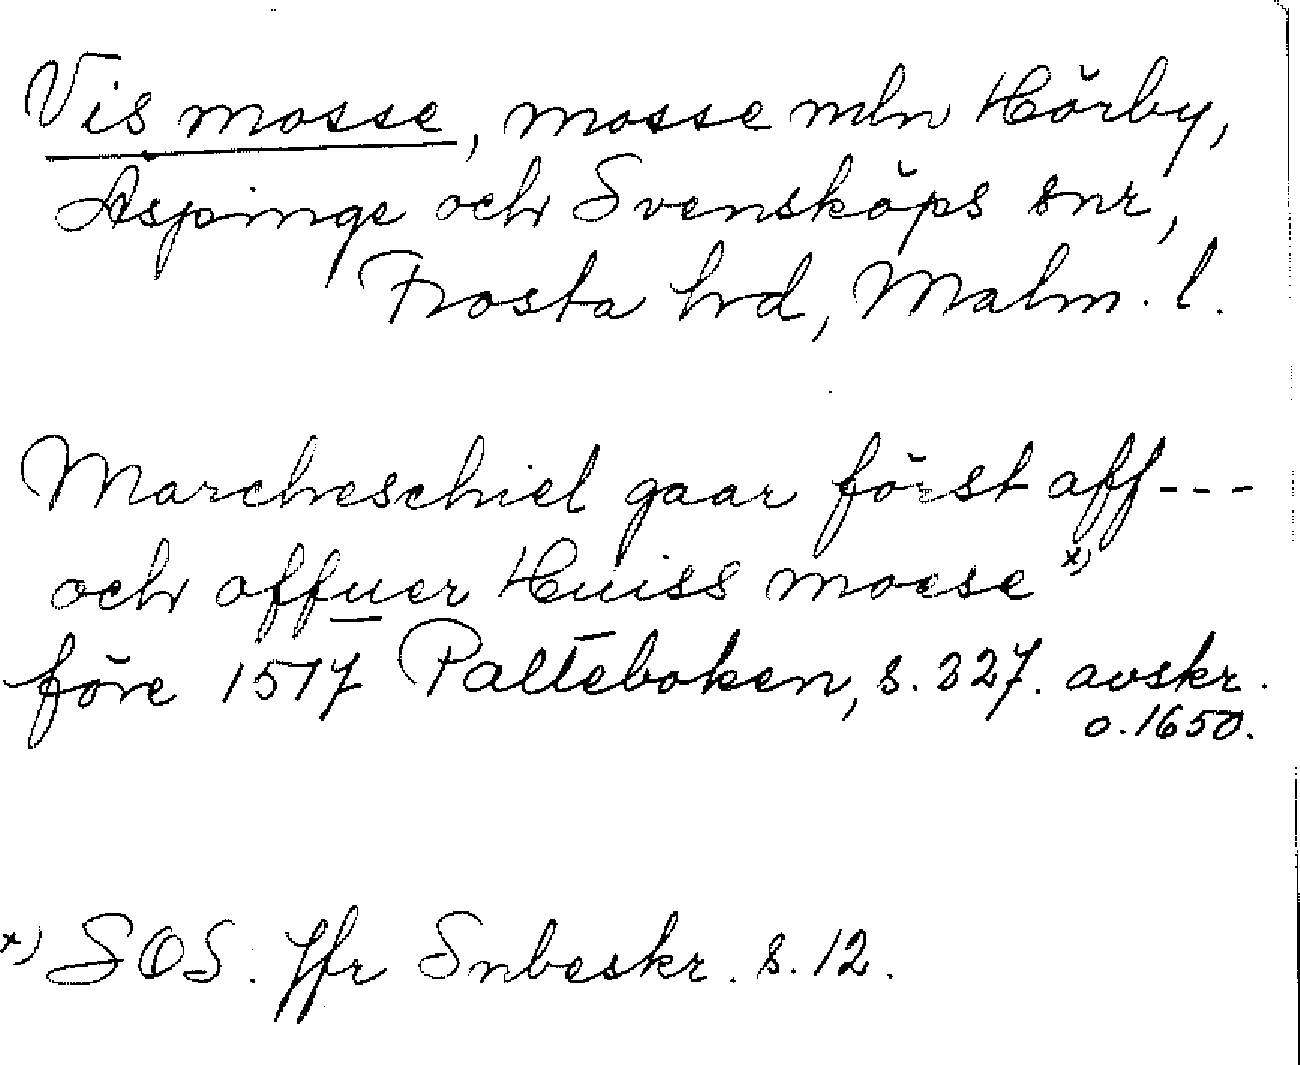 Vis mosse, mosse mln Hörby,
Äspinge och Svensköps snr,
Frosta hrd, Malm. l.
Marcheschiel gaar först aff---
och offuer Huiss moese *)
före 1517 Palteboken, s. 327. avskr.
o. 1650.
*) SOS. Jfr Snbeskr. s. 12.